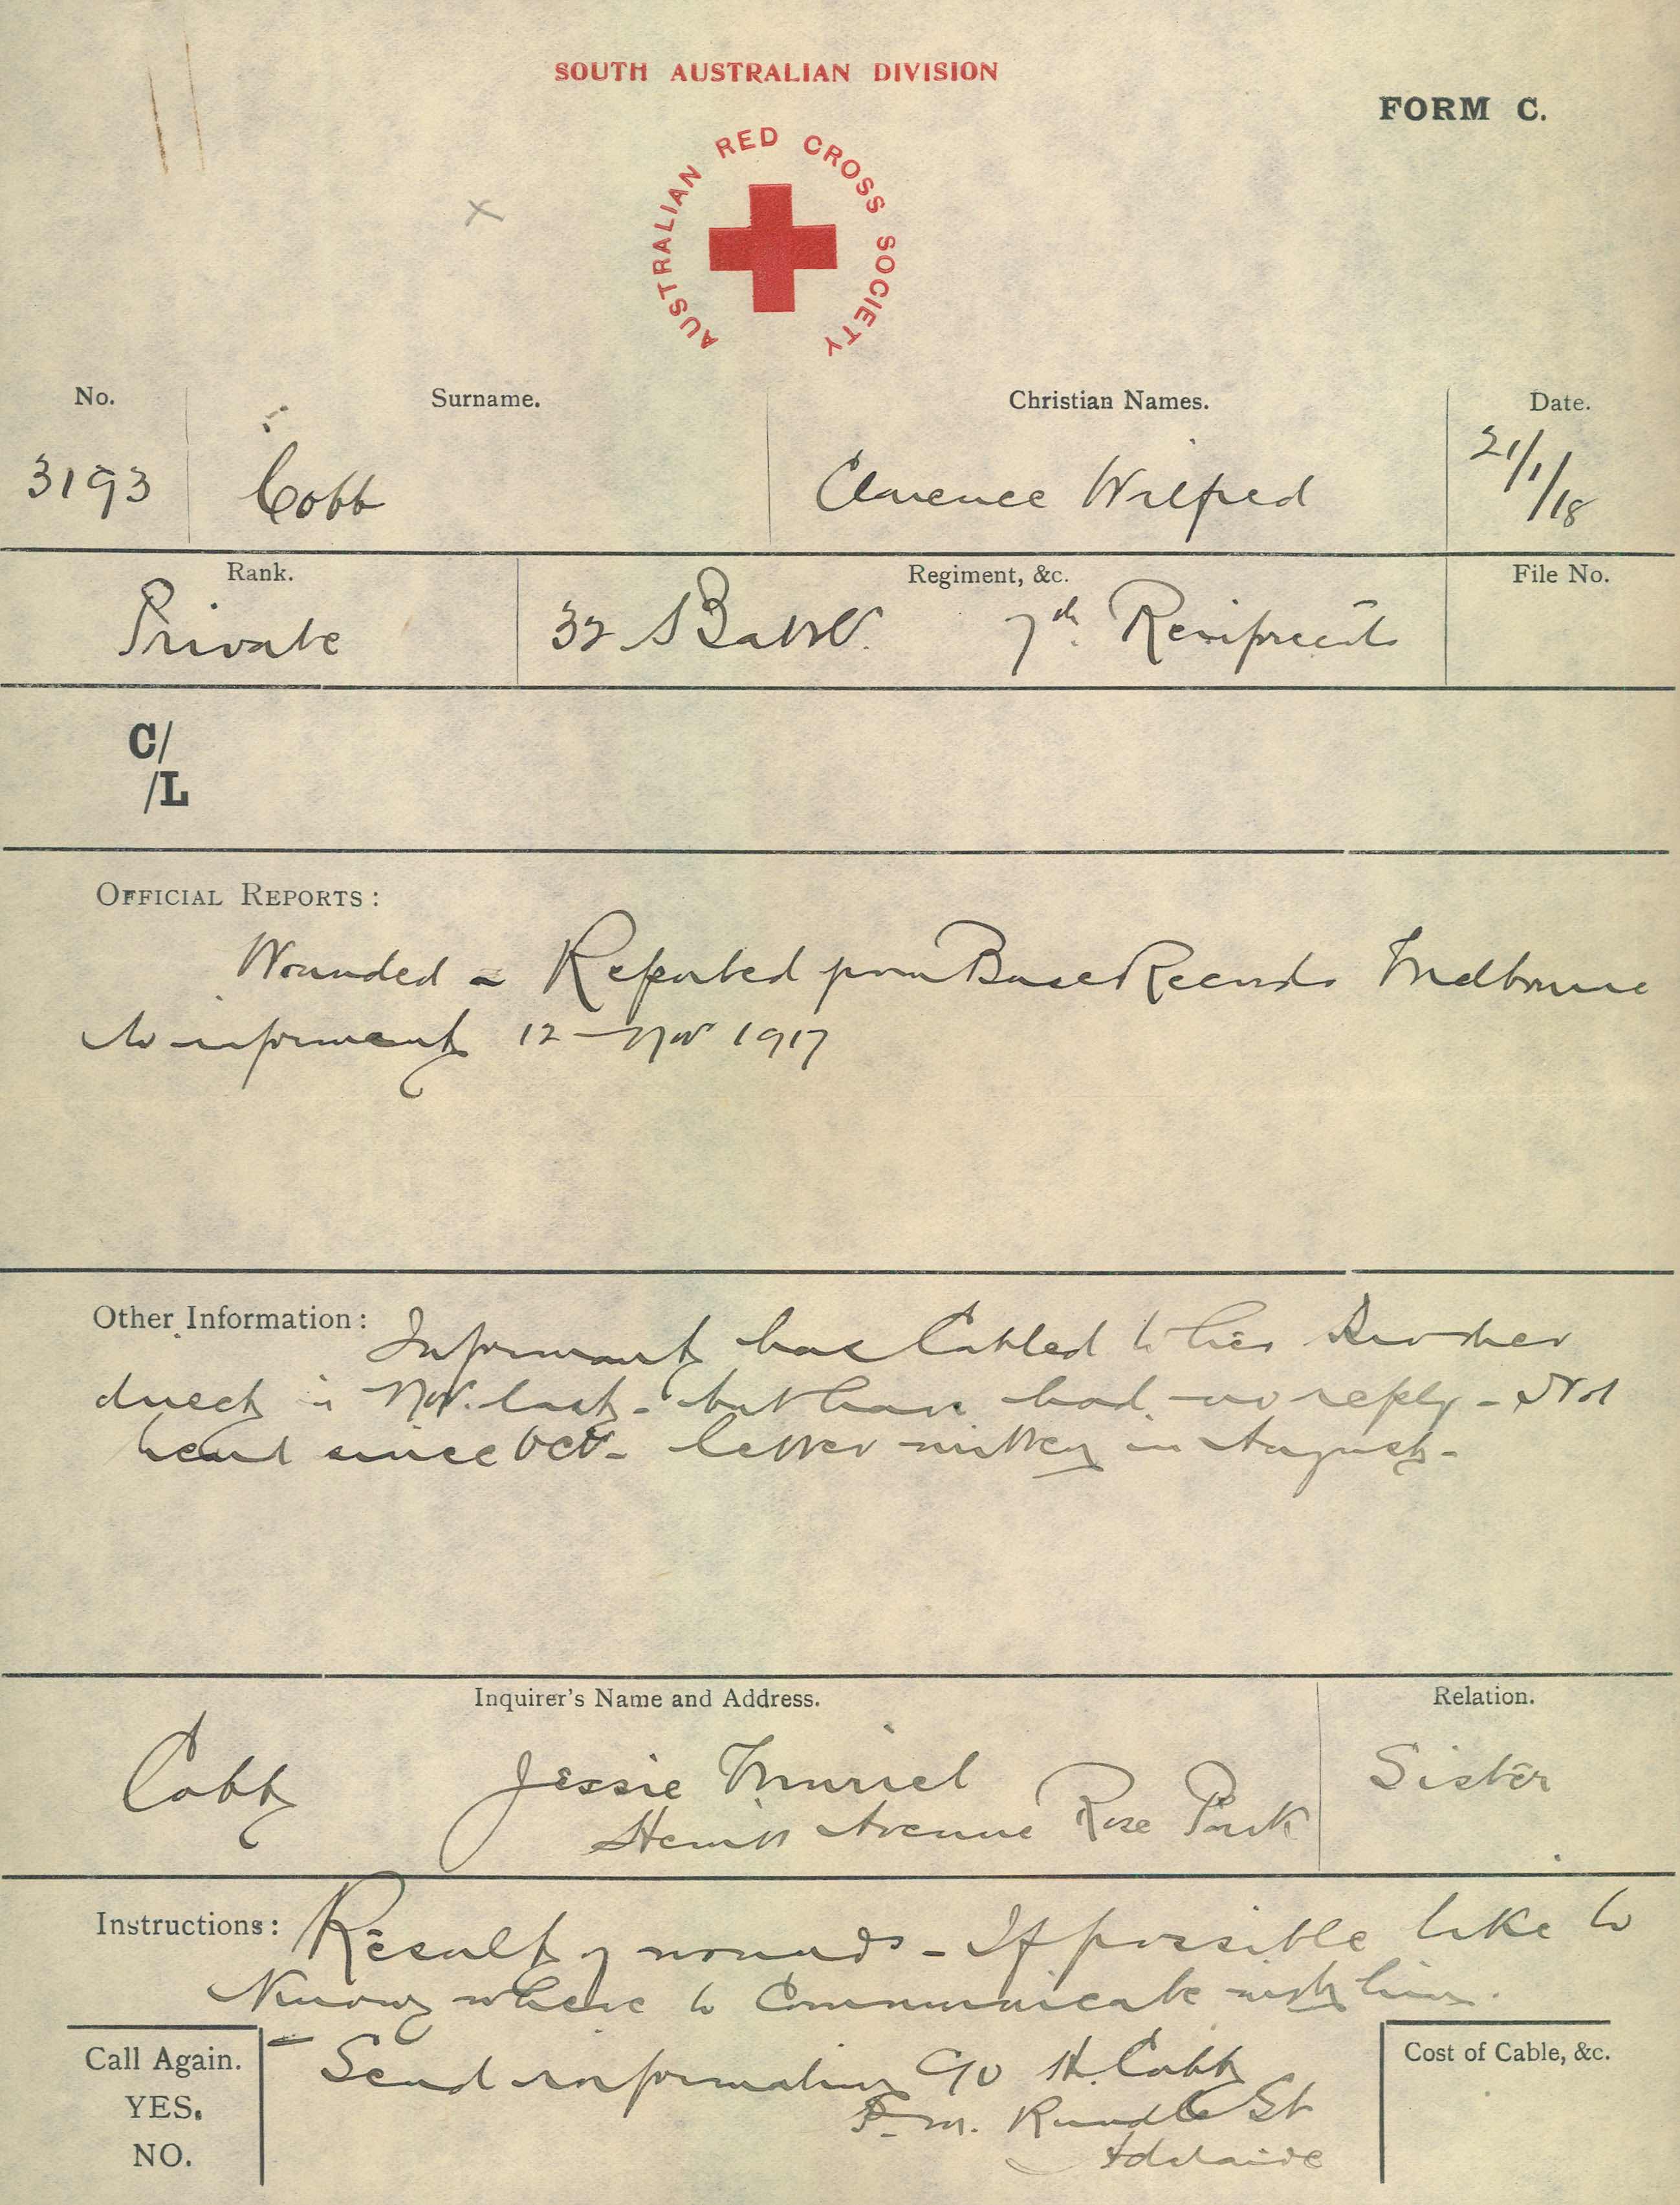 SOUTH AUSTRALIAN DIVISION
FORM C.
AUSTRALIAN RED CROSS SOCIETY
No. Surname. Christian Names. Date.
3193 Cobb Clarence Wilfred 21/1/18
Rank. Regiment, &c. File No.
Private 32 Battn. 7th Reinforcements
C/
/L
OFFICIAL REPORTS:
Wounded - Reported from Base Records Melbourne
to informant 12 - Nov 1917
Other Information: Informant has Cabled to his
direct in Nov. last - but have had no reply - Not
heard since Oct - letter written in August -
Inquirer's Name and Address. Relation.
Cobb Jessie Muriel Sister
Avenue Rose Park
Instructions: Result of wounds - If possible like to
Know where to Communicate with him.
Call Again. - Send information C/o H. Cobb Cost of Cable, &c.
YES. Rundle St
NO. Adelaide